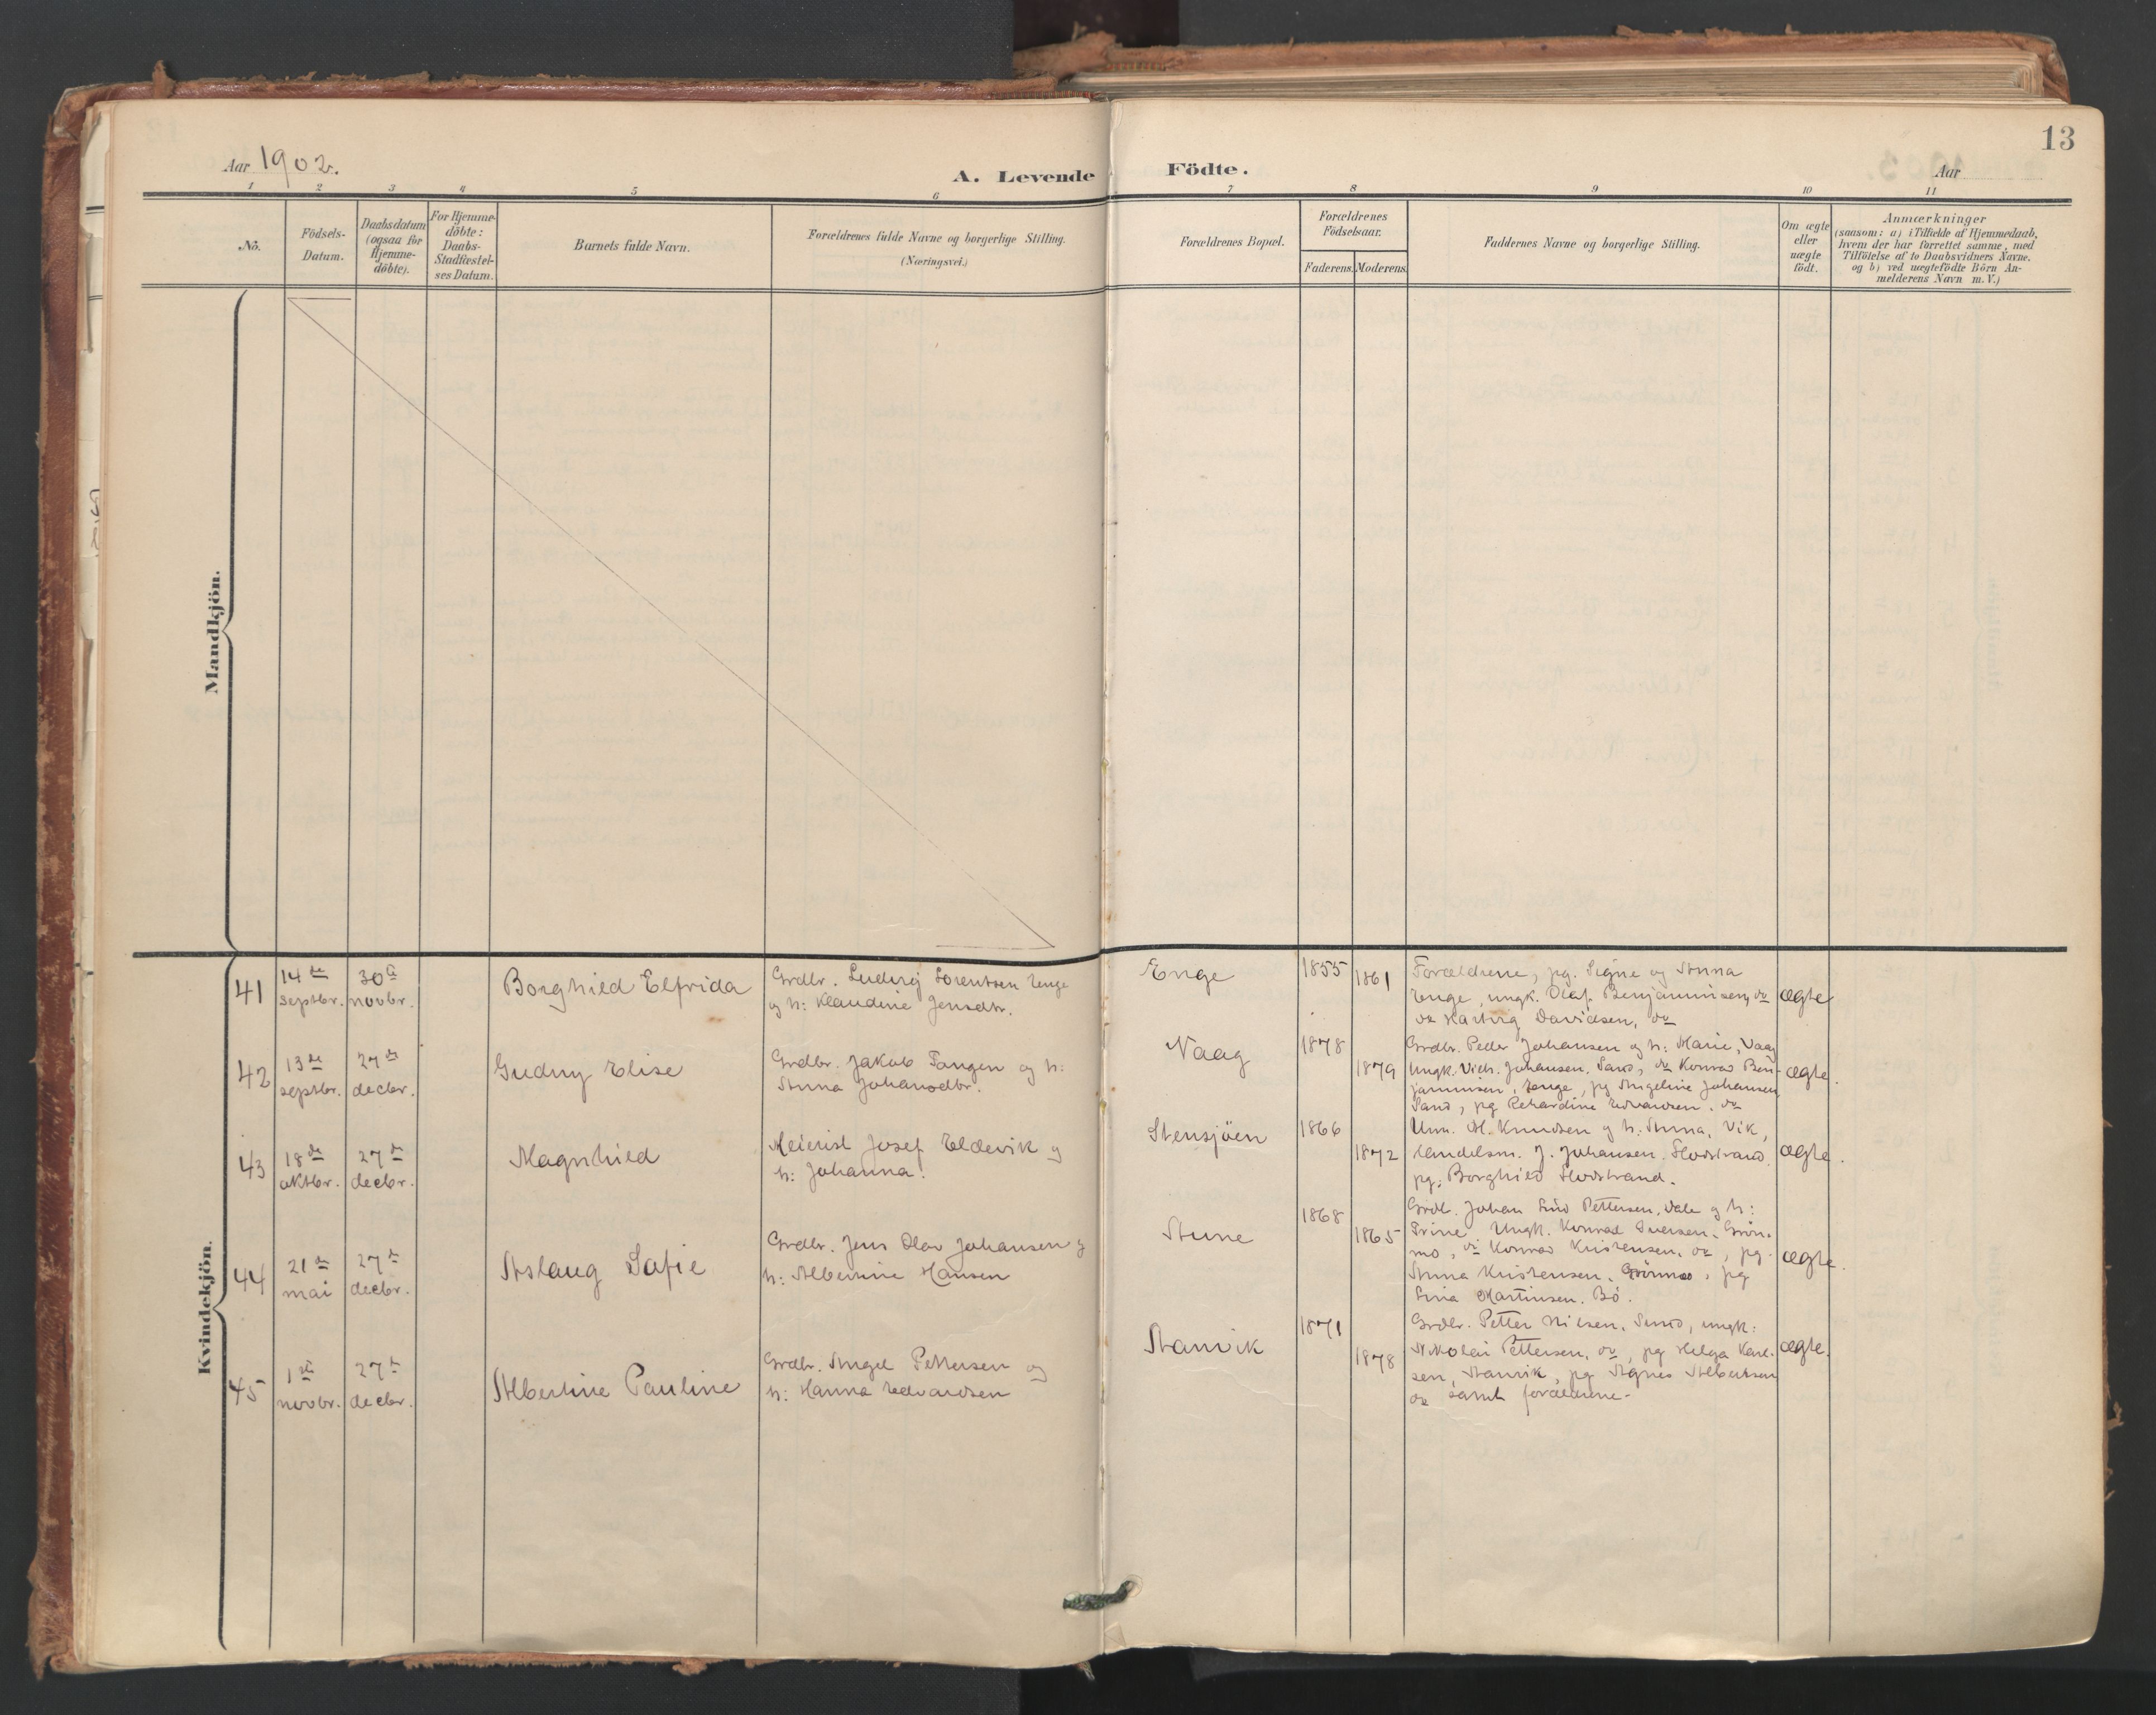 13
Aar 1902.
A. Levende Födte.
Aar
1 2 3 4 5 6 7 8 9 10 11
No.
Födsels-
Datum.
Daabsdatum
(ogsaa for
Hjemme-
döbte).
For Hjemme-
döbte:
Daabs-
Stadfæstel-
ses Datum.
Barnets fulde Navn.
Forældrenes fulde Navne og borgerlige Stilling.
(Næringsvei.)
Forældrenes Bopæl.
Forældrenes
Födselsaar.
Faderens.
Moderens.
Faddernes Navne og borgerlige Stilling.
Om ægte
eller
uægte
födt.
Anmærkninger
(saasom: a) i Tilfælde af Hjemmedaab,
hvem der har forrettet samme, med
Tilföielse af to Daabsvidners Navne.
og b) ved uægtefödte Börn An-
melderens Navn m.V.)
Mandkjön.
Kvindekjön.
41
14de
septbr.
30te
novbr.
Borghild Elfrida
Grdbr. Ludvig Lorentsen Enge
og h: Klaudine Jensdtr.
Enge
1855
1861
Forældrene, pg. Signe og Anna
Enge, ungk. Olaf Benjaminsen, do
do Hartvig Davidsen, do
ægte
42
13de
septbr.
27de
decbr.
Gudny Elise
Grdbr. Jakob Tangen og h:
Anna Johansdtr.
Vaag
1878
1879
Grdbr. Peder Johansen og h: Marie, Vaag
Ungk. Vich. Johansen, Sand, do Konrad Ben-
jaminsen, Enge, pg Angeline Johansen
Sand, pg Rikardine Edvardsen, do
ægte.
43
18de
oktbr.
27de
decbr.
Magnhild
Meierist Josef Eldevik og
h: Johanna.
Stensjöen
1866
1872
M. Knudsen og h: Anna, Vik,
Handelsm. J. Johansen, Flostrand,
pg; Borghild Flostrand.
ægte.
44
21de
mai
27de
decbr.
Aslaug Sofie
Grdbr. Jens Olav Johansen og
h: Albertine Hansen
Aune
1868
1865
Grdb. Johan Pettersen, Dale og h:
Trine, Ungk. Konrad Iversen, Grön-
mo, do Konrad Kristensen, do, pg.
Anna Kristensen, Grönmo, pg
Lina Martinsen, Bö.
ægte.
45
1ste
novbr.
27de
decbr.
Albertine Pauline
Grdbr. Angel Pettersen og
h: Hanna Edvardsen
Stamvik
1871
1878
Grdbr. Petter Nilsen, Sund, ungk:
Nikolai Pettersen, do, pg Helga Karl-
sen, Stamvik, pg Agnes Albertsen
do samt forældrene.
ægte.